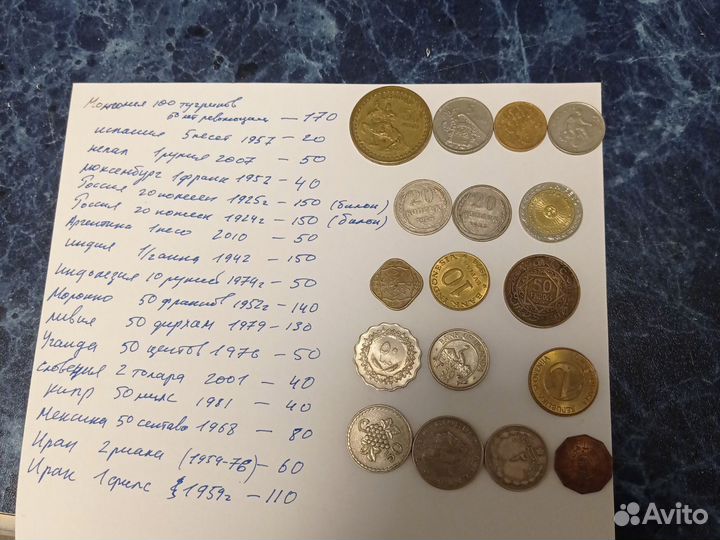 Монголия 100 тугриков
50 лет революции — 170
испания 5 песет 1957 — 20
непал 1 рупия 2007 — 50
люксенбург 1 франк 1952 — 40
Россия 20 копеек 1925г — 150 (билон)
Россия 20 копеек 1924г — 150 (билон)
Аргентина 1 песо 2010 — 50
индия 1/2 анна 1942 — 150
Индонезия 10 рупий 1974г — 50
Морокко 50 франков 1952г — 140
ливия 50 дирхам 1979 — 130
Уганда 50 центов 1976 — 50
словения 2 толара 2001 — 40
кипр 50 милс 1981 — 40
Мексика 50 сентаво 1968 — 80
Иран 2 риала (1959-76) — 60
Ирак 1 филс 1959г — 110
20
КОПЕЕК
20
10
BANK INDONESIA
50
FRANCS
٥٠
2
SLOVENIJA
50
Avito